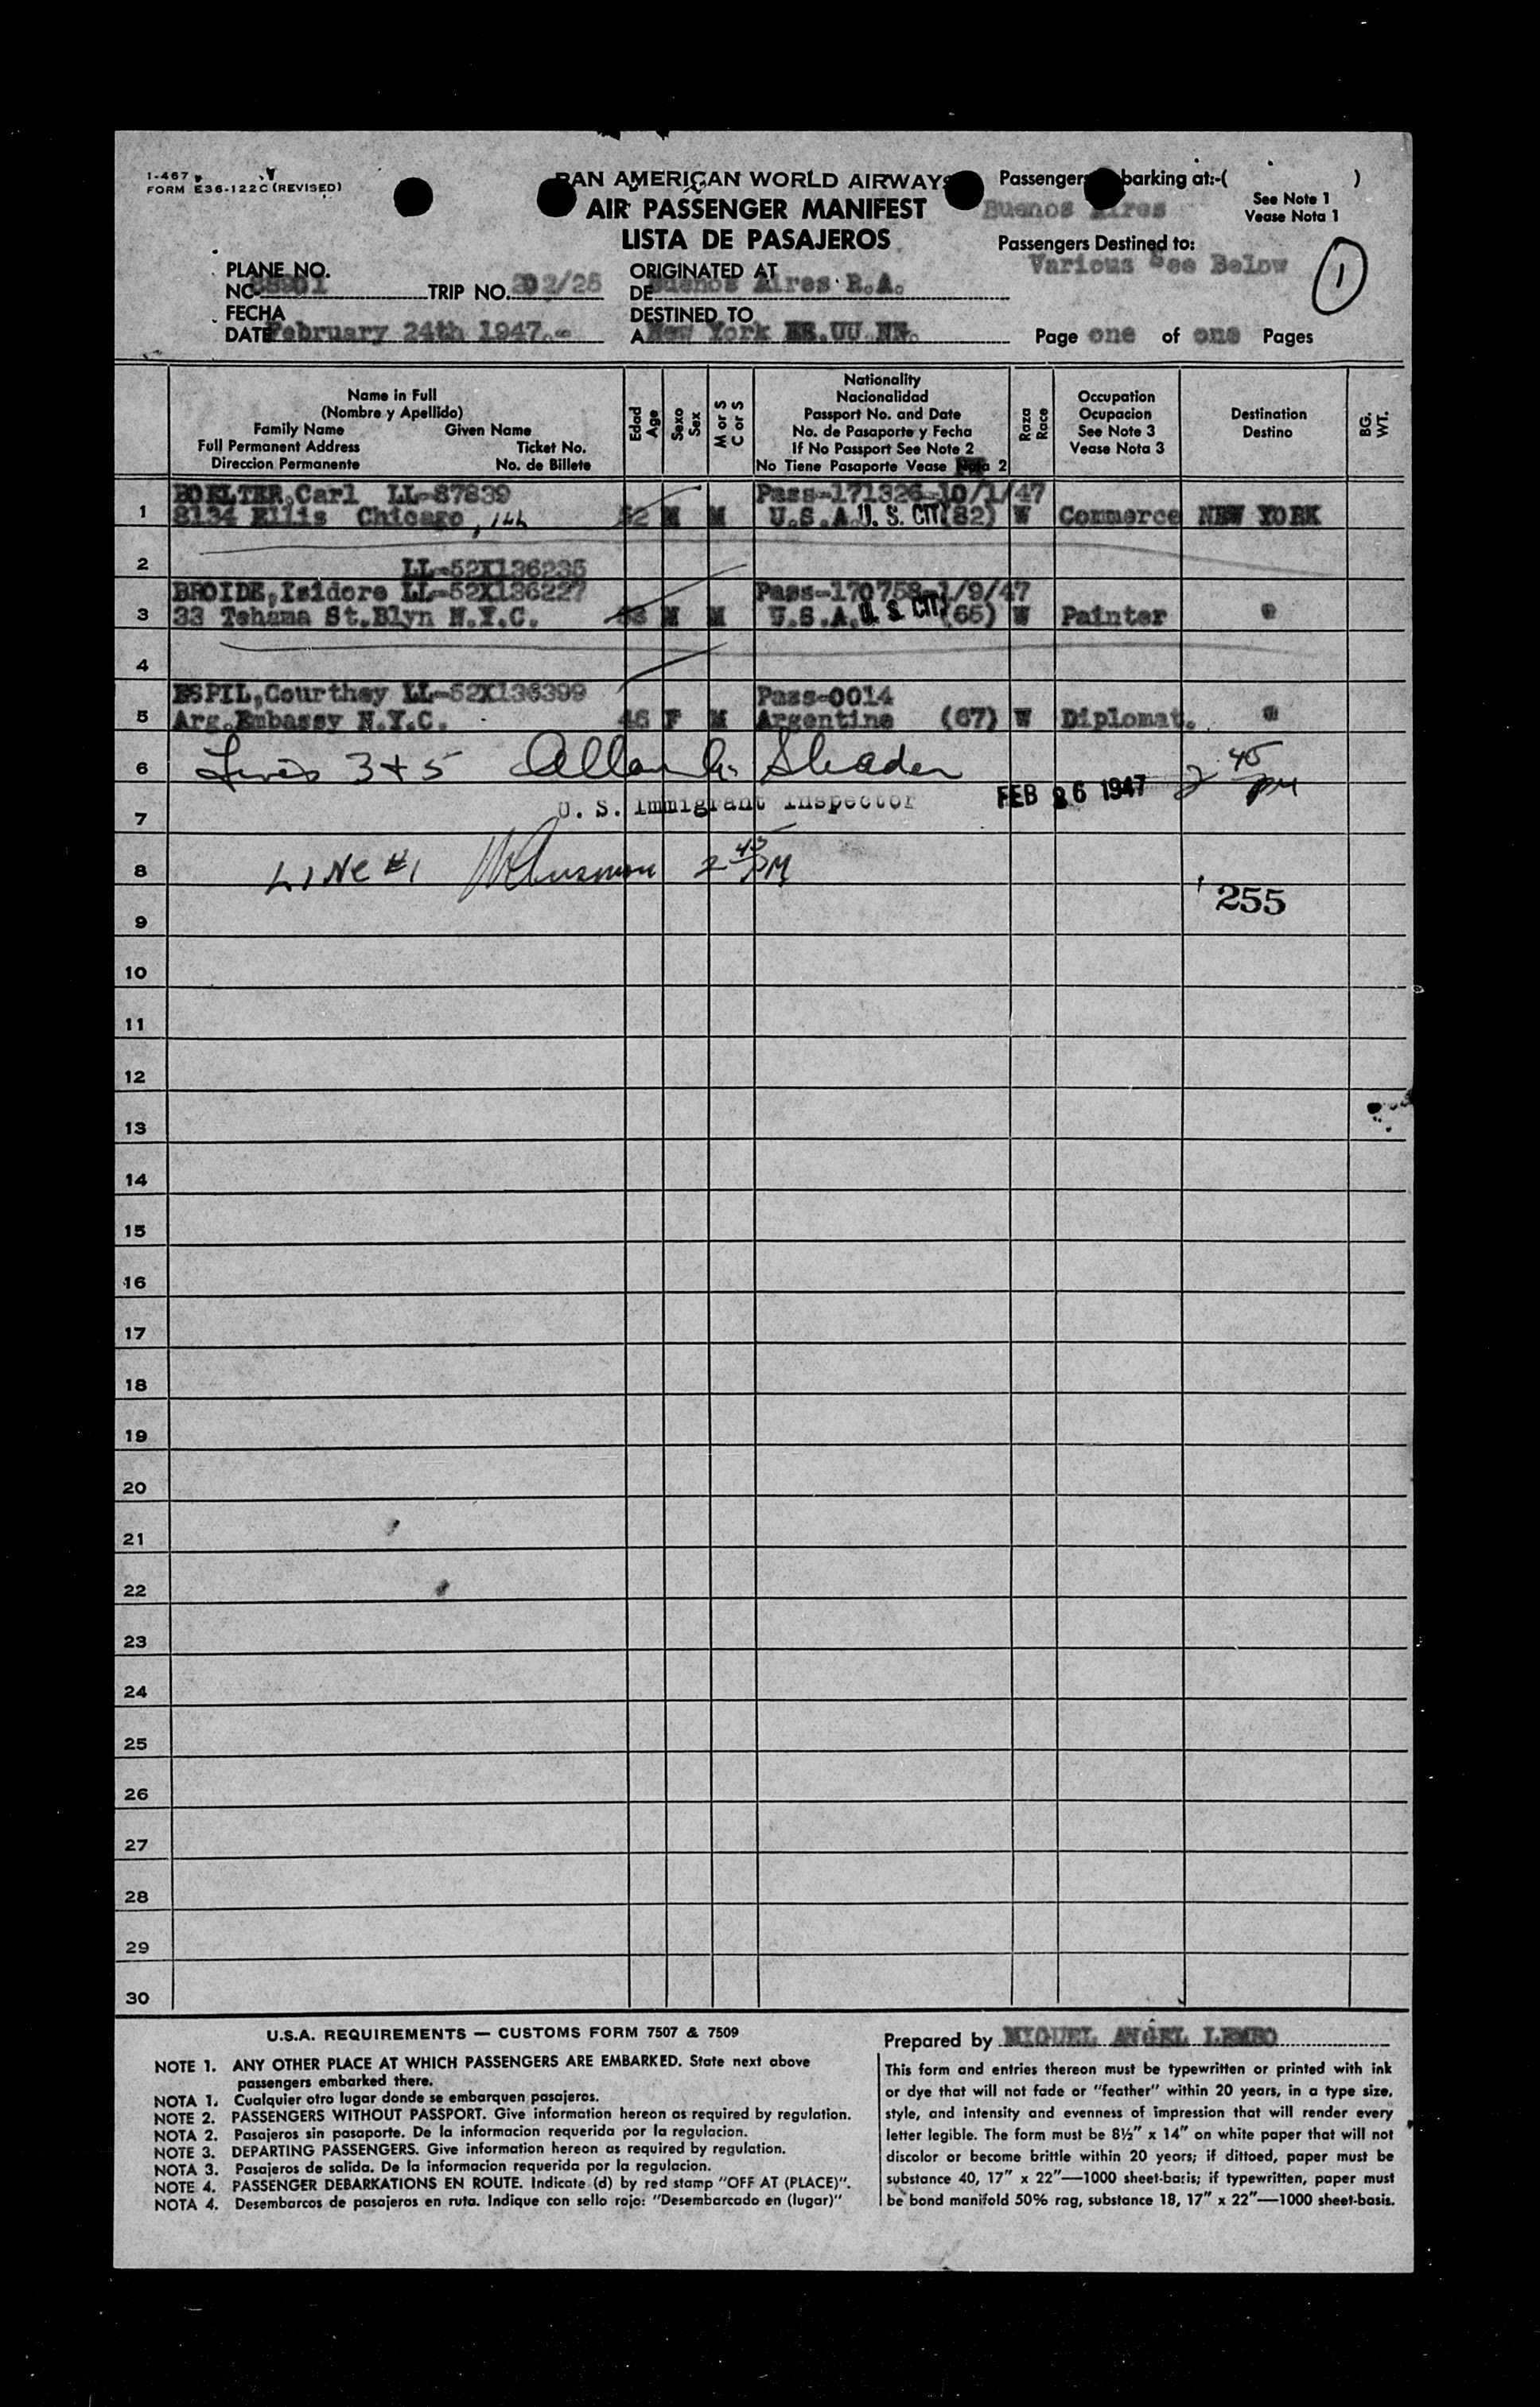 1-467
FORM E36-122C (REVISED)
PAN AMERICAN WORLD AIRWAYS
AIR PASSENGER MANIFEST
LISTA DE PASAJEROS
Passengers barking at:-( )
Buenos Aires
See Note 1
Vease Nota 1
Passengers Destined to:
Various See Below
1
PLANE NO.
NO. TRIP NO. 202/25
ORIGINATED AT
DE Buenos Aires R.A.
FECHA
DATE February 24th 1947.-
DESTINED TO
A New York EE.UU.NN.
Page one of one Pages
Name in Full
(Nombre y Apellido)
Family Name Given Name
Full Permanent Address Ticket No.
Direccion Permanente No. de Billete
Edad
Age
Sexo
Sex
M or S
C or S
Nationality
Nacionalidad
Passport No. and Date
No. de Pasaporte y Fecha
If No Passport See Note 2
No Tiene Pasaporte Vease Nota 2
Raza
Race
Occupation
Ocupacion
See Note 3
Vease Nota 3
Destination
Destino
BG.
WT.
BOELTER,Carl LL-87839 Pass-171326-10/1/47
1 8134 Ellis Chicago, Ill M M U.S.A. U. S. CIT (82) W Commerce NEW YORK
2 LL-52X136235
BROIDE,Isidore LL-52X136227 Pass-170758-1/9/47
3 33 Tehama St.Blyn N.Y.C. M M U.S.A. U. S. CIT (65) W Painter "
4
ESPIL,Courthey LL-52X136399 Pass-0014
5 Arg.Embassy N.Y.C. 46 F M Argentine (67) W Diplomat. "
6 Lines 3 + 5 Allan Shader 2 45 pm
7 U. S. Immigrant Inspector FEB 26 1947
8 LINE #1 2 45 PM
255
9
10
11
12
13
14
15
16
17
18
19
20
21
22
23
24
25
26
27
28
29
30
U.S.A. REQUIREMENTS — CUSTOMS FORM 7507 & 7509
NOTE 1. ANY OTHER PLACE AT WHICH PASSENGERS ARE EMBARKED. State next above
passengers embarked there.
NOTA 1. Cualquier otro lugar donde se embarquen pasajeros.
NOTE 2. PASSENGERS WITHOUT PASSPORT. Give information hereon as required by regulation.
NOTA 2. Pasajeros sin pasaporte. De la informacion requerida por la regulacion.
NOTE 3. DEPARTING PASSENGERS. Give information hereon as required by regulation.
NOTA 3. Pasajeros de salida. De la informacion requerida por la regulacion.
NOTE 4. PASSENGER DEBARKATIONS EN ROUTE. Indicate (d) by red stamp "OFF AT (PLACE)".
NOTA 4. Desembarcos de pasajeros en ruta. Indique con sello rojo: "Desembarcado en (lugar)"
Prepared by MIGUEL ANGEL LEMBO
This form and entries thereon must be typewritten or printed with ink
or dye that will not fade or "feather" within 20 years, in a type size,
style, and intensity and evenness of impression that will render every
letter legible. The form must be 8½" x 14" on white paper that will not
discolor or become brittle within 20 years; if dittoed, paper must be
substance 40, 17" x 22"—1000 sheet-baris; if typewritten, paper must
be bond manifold 50% rag, substance 18, 17" x 22"—1000 sheet-basis.